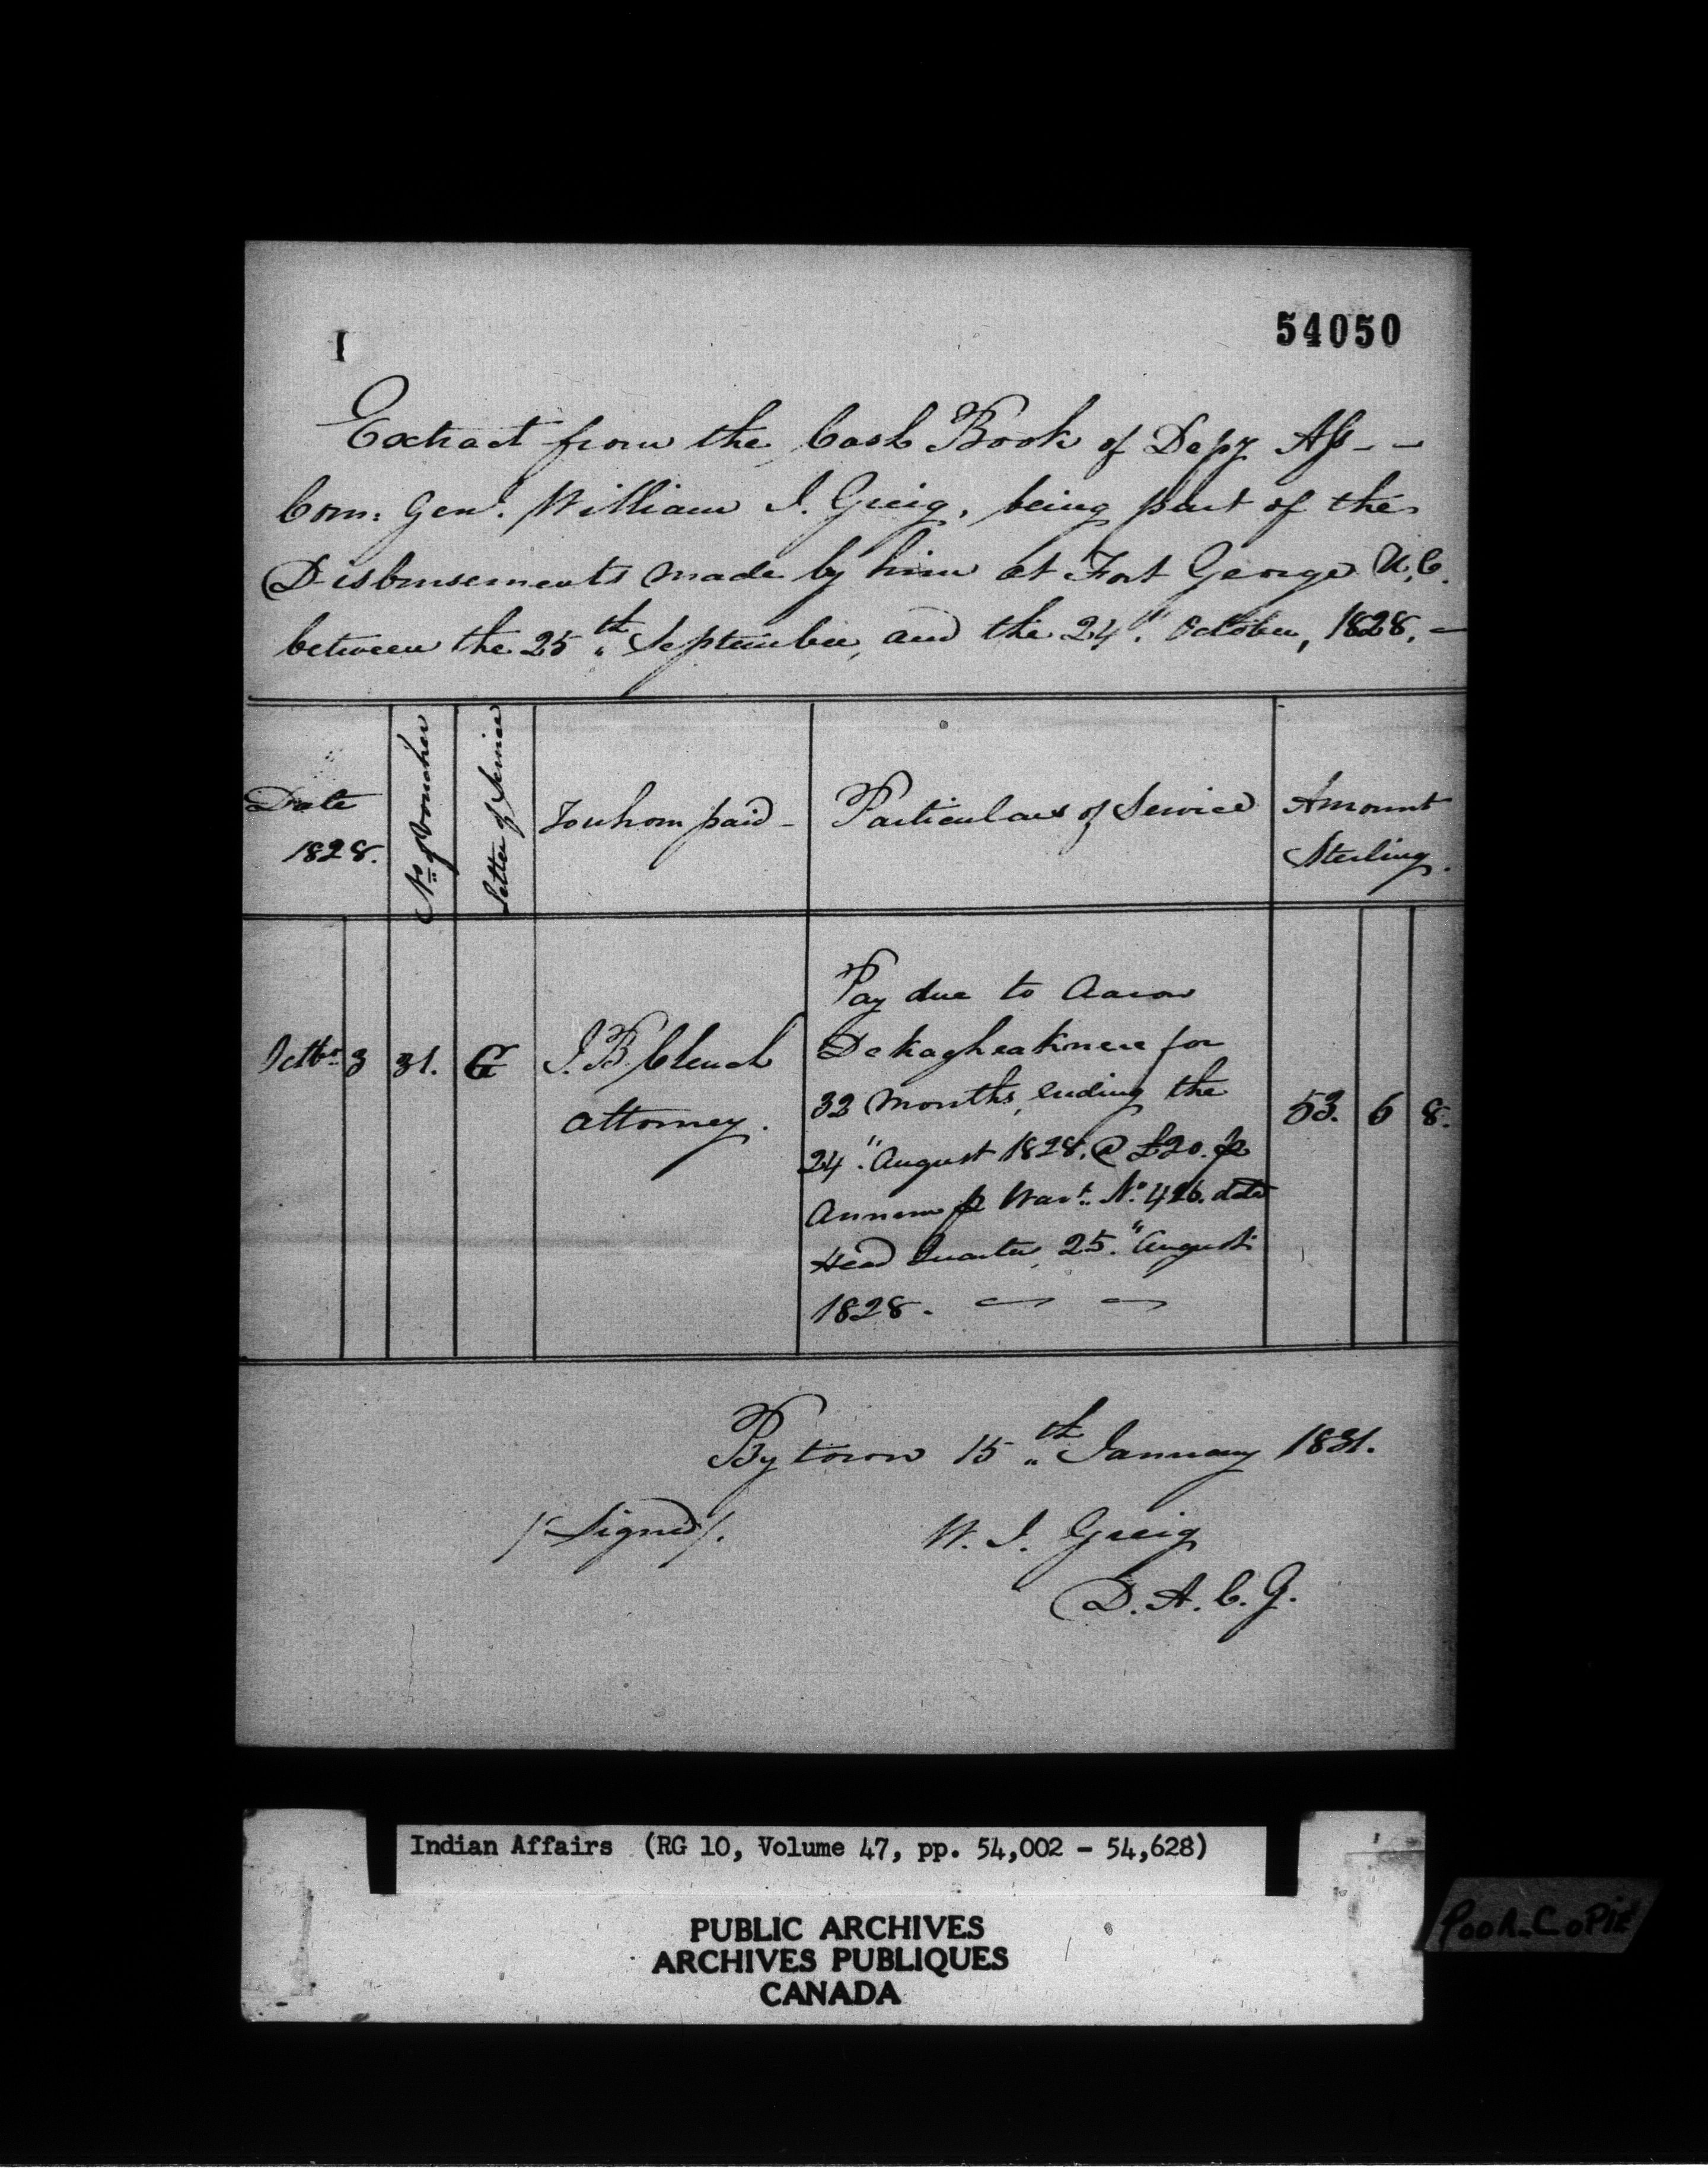 I
54050
Extract from the Cash Book of Depy Ass - -
Com: Genl. William J. Greig, being part of the
Disbursements made by him at Fort George U.C.
between the 25th September, and the 24" October, 1828, -
Date 1828.
No of Voucher
Letter of Service
To whom paid -
Particulars of Service
Amount Sterling.
Octbr 3
31.
G
J. B. Clench
attorney.
Pay due to Aaron
Dekagheakinere for
32 Months, ending the
24" August 1828. @ £20. p
Annum p Wart. No. 426. dated
Head Quarters, 25" August
1828. - -
53. 6 8.
Bytown 15th January 1831.
/Signed/. W. J. Greig
D. A. C. G.
Indian Affairs (RG 10, Volume 47, pp. 54,002 - 54,628)
PUBLIC ARCHIVES
ARCHIVES PUBLIQUES
CANADA
POOR-COPIE